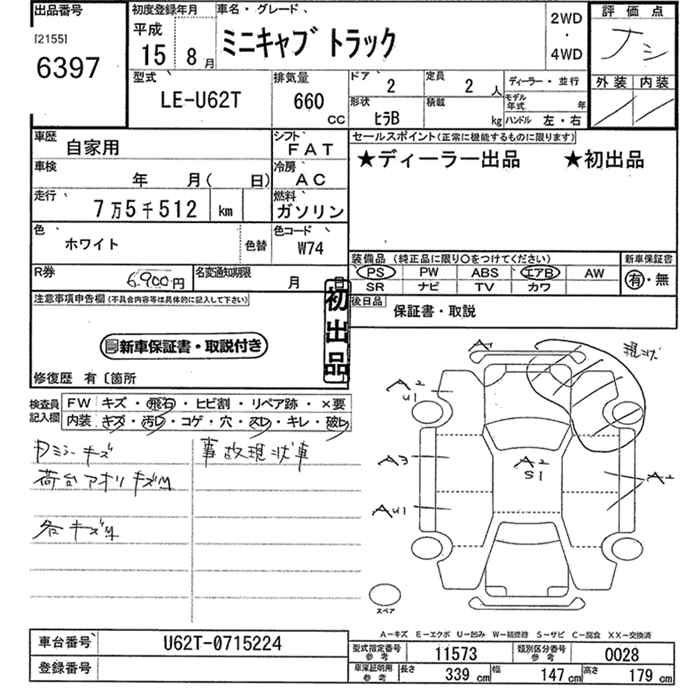 出品番号 初度登録年月 車名・グレード 2WD・4WD 評価点
[2155]
6397
平成 15 8月 ミニキャブ トラック ナシ
外装 内装
型式 排気量 ドア 2 定員 2人 ディーラー・並行
LE-U62T 660CC 形状 ヒラB 積載 kg モデル年式 年
ハンドル 左・右
車歴 自家用 シフト FAT セールスポイント(正常に機能するものに限ります)
車検 年 月( 日) 冷房 AC ★ディーラー出品 ★初出品
走行 7万5千512 km 燃料 ガソリン
色 ホワイト 色替 色コード W74
装備品(純正品に限り○をつけてください) 新車保証書
PS PW ABS エアB AW 有・無
SR ナビ TV カワ
R券 6,900円 名変通知期限 月 日
後日品 保証書・取説
注意事項申告欄(不具合内容等は具体的に記入して下さい)
初出品
新車保証書・取説付き
修復歴 有〔箇所
検査員記入欄 FW キズ・飛石・ヒビ割・リペア跡・×要
内装 キズ・汚レ・コゲ・穴・スレ・キレ・破レ
Pミラーキズ 事故現状車
荷台アオリ キズM
各キズM
A
現状
A2
U1
A3
A2
S1
A2
AU1
スペア
A-キズ E-エクボ U-凹み W-補修跡 S-サビ C-腐食 XX-交換済
車台番号 U62T-0715224
型式指定番号 参考 11573 類別区分番号 参考 0028
登録番号
車庫証明用 参考 長さ 339cm 幅 147cm 高さ 179cm